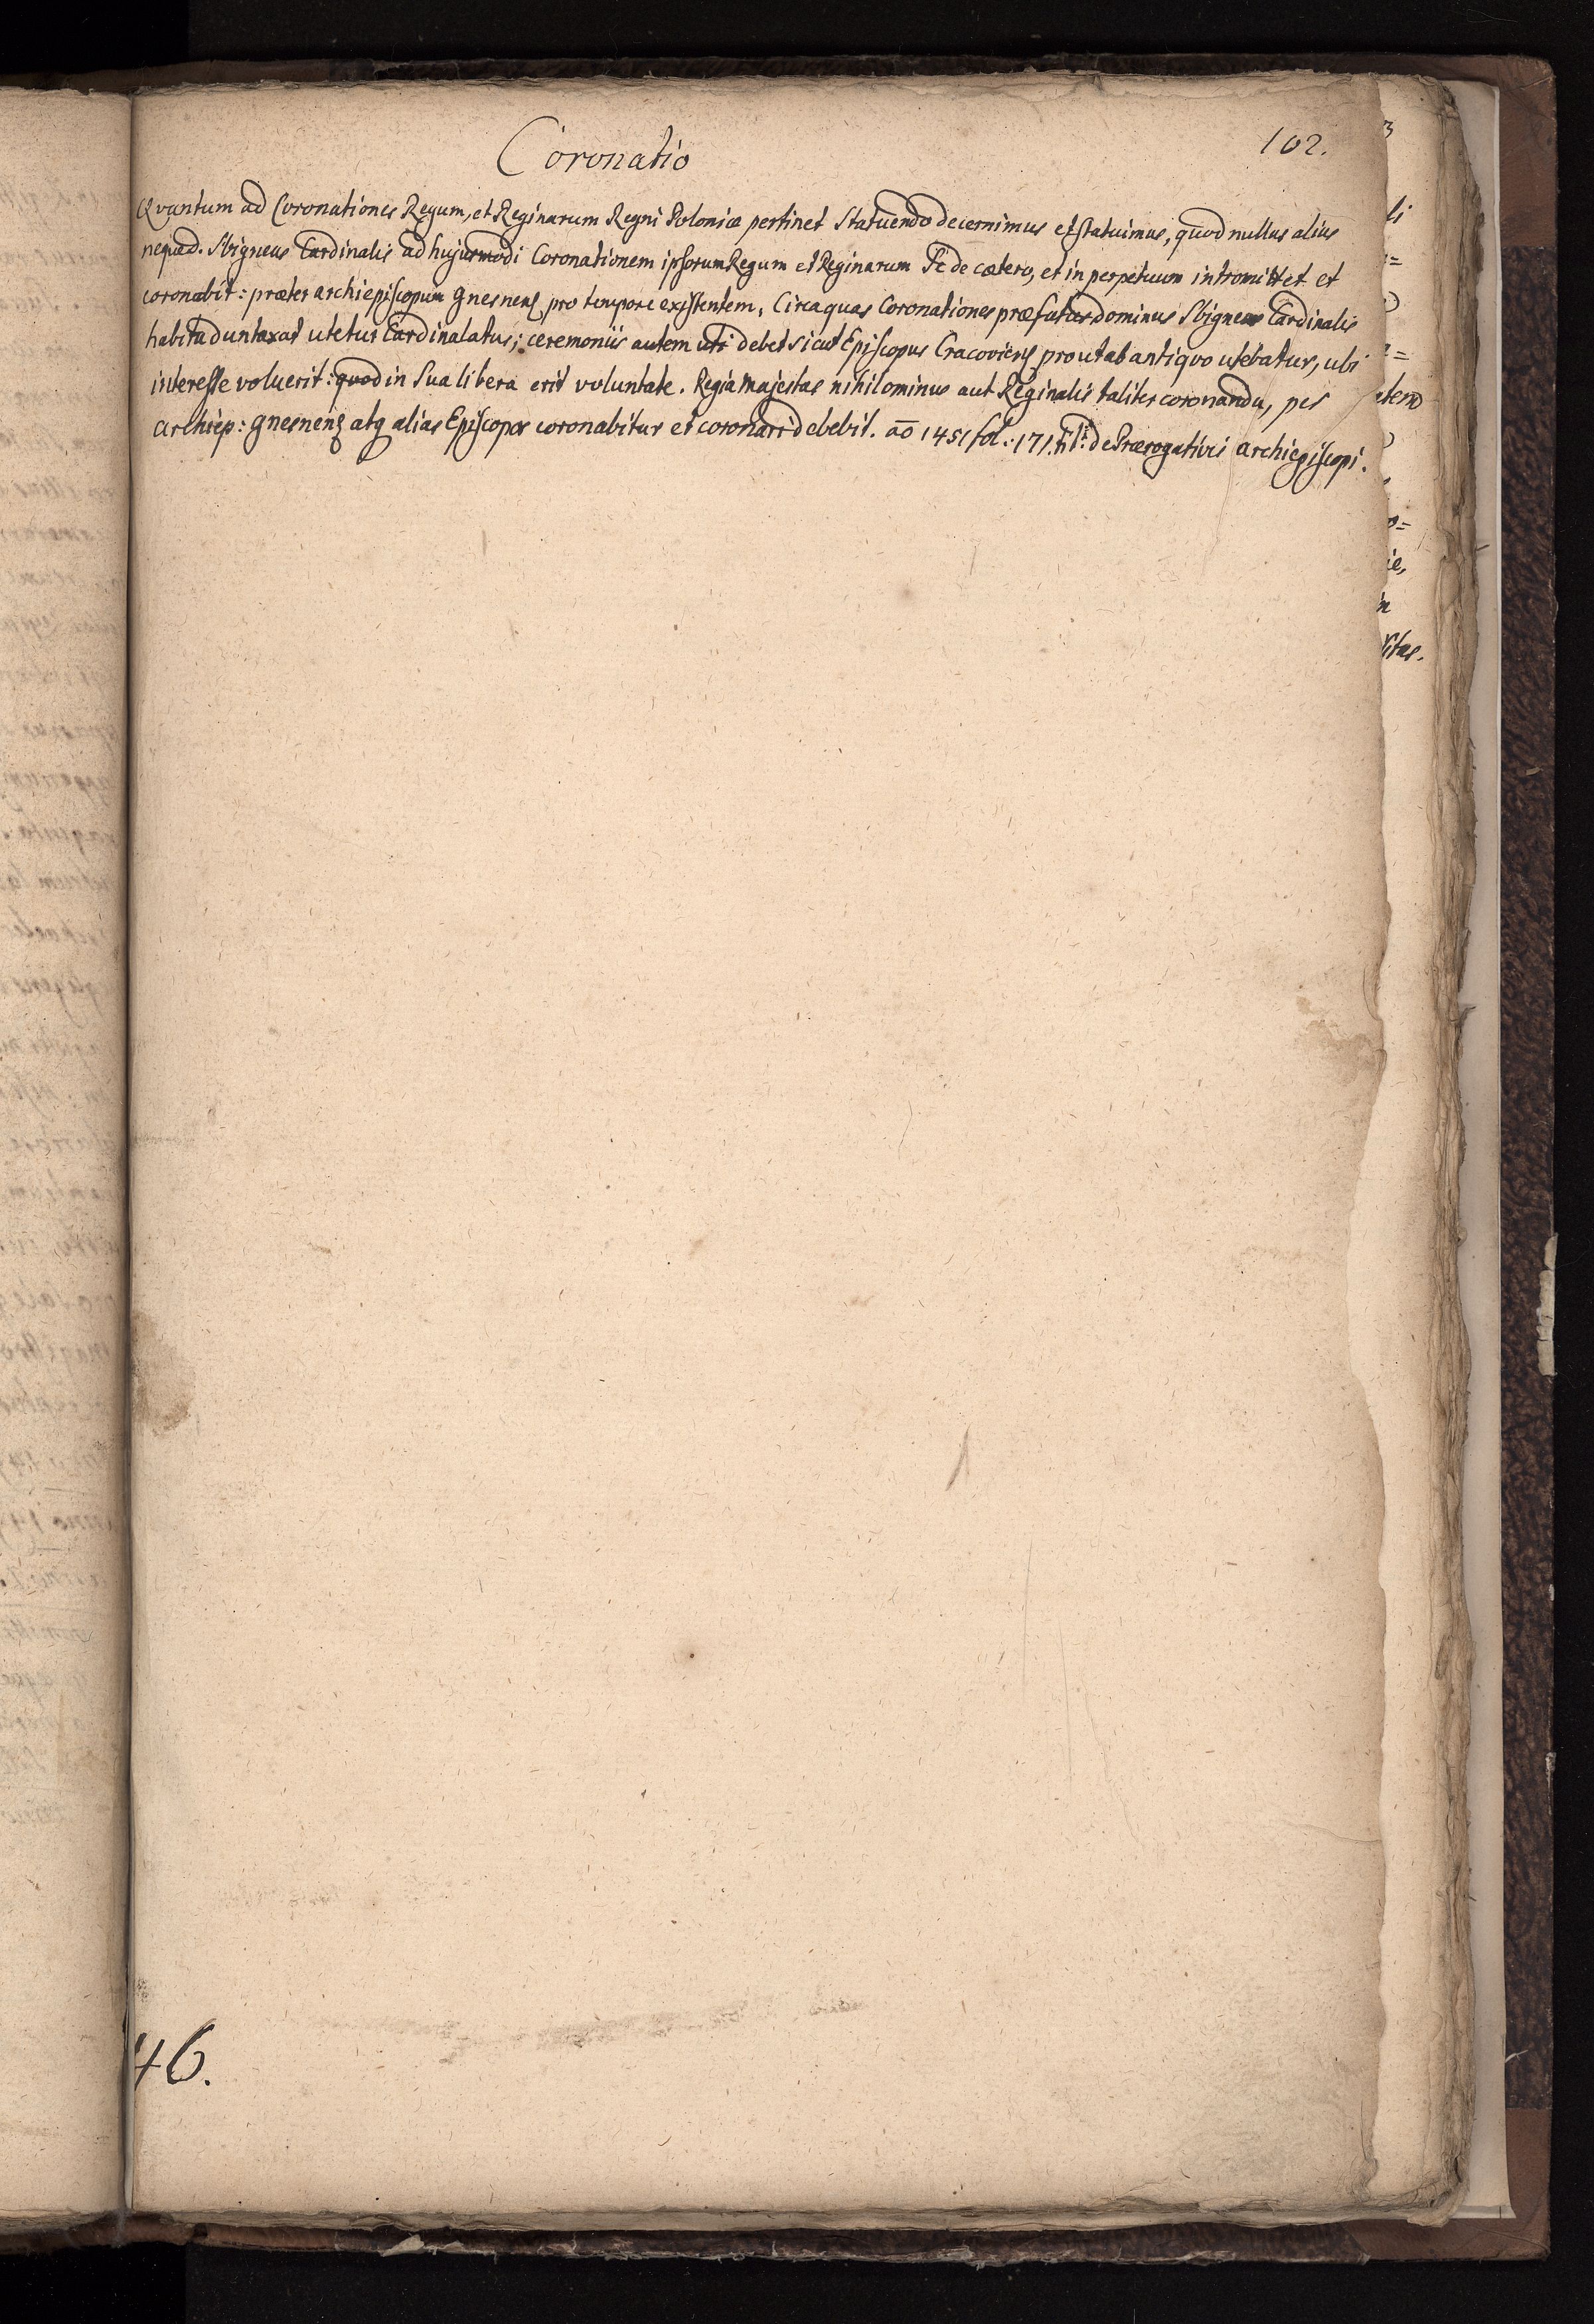 Coronatio
102.
Qvantum ad Coronationes Regum, et Reginarum Regni Poloniæ pertinet Statuendo decernimus et statuimus, quod nullus alius
neque d. Sbigneus Cardinalis ad hujusmodi Coronationem ipsorum Regum et Reginarum &c de cætero, et in perpetuum intromittet et
coronabit: præter archiepiscopum gnesnenſ pro tempore existentem, Circa quas Coronationes præfatus dominus Sbigneus Cardinalis
habitu duntaxat utetur Cardinalatus; ceremoniis autem uti debet sicut Episcopus Cracovienſ prout ab antiquo utebatur, ubi
interesse voluerit: quod in sua libera erit voluntate. Regia Majestas nihilominus aut Reginalis taliter coronanda, per
Archiep: gnesnenſ atq alias Episcopos coronabitur et coronari debebit. ao 1451 fol: 171. tit: de Prærogativis archiepiscopi.
46.